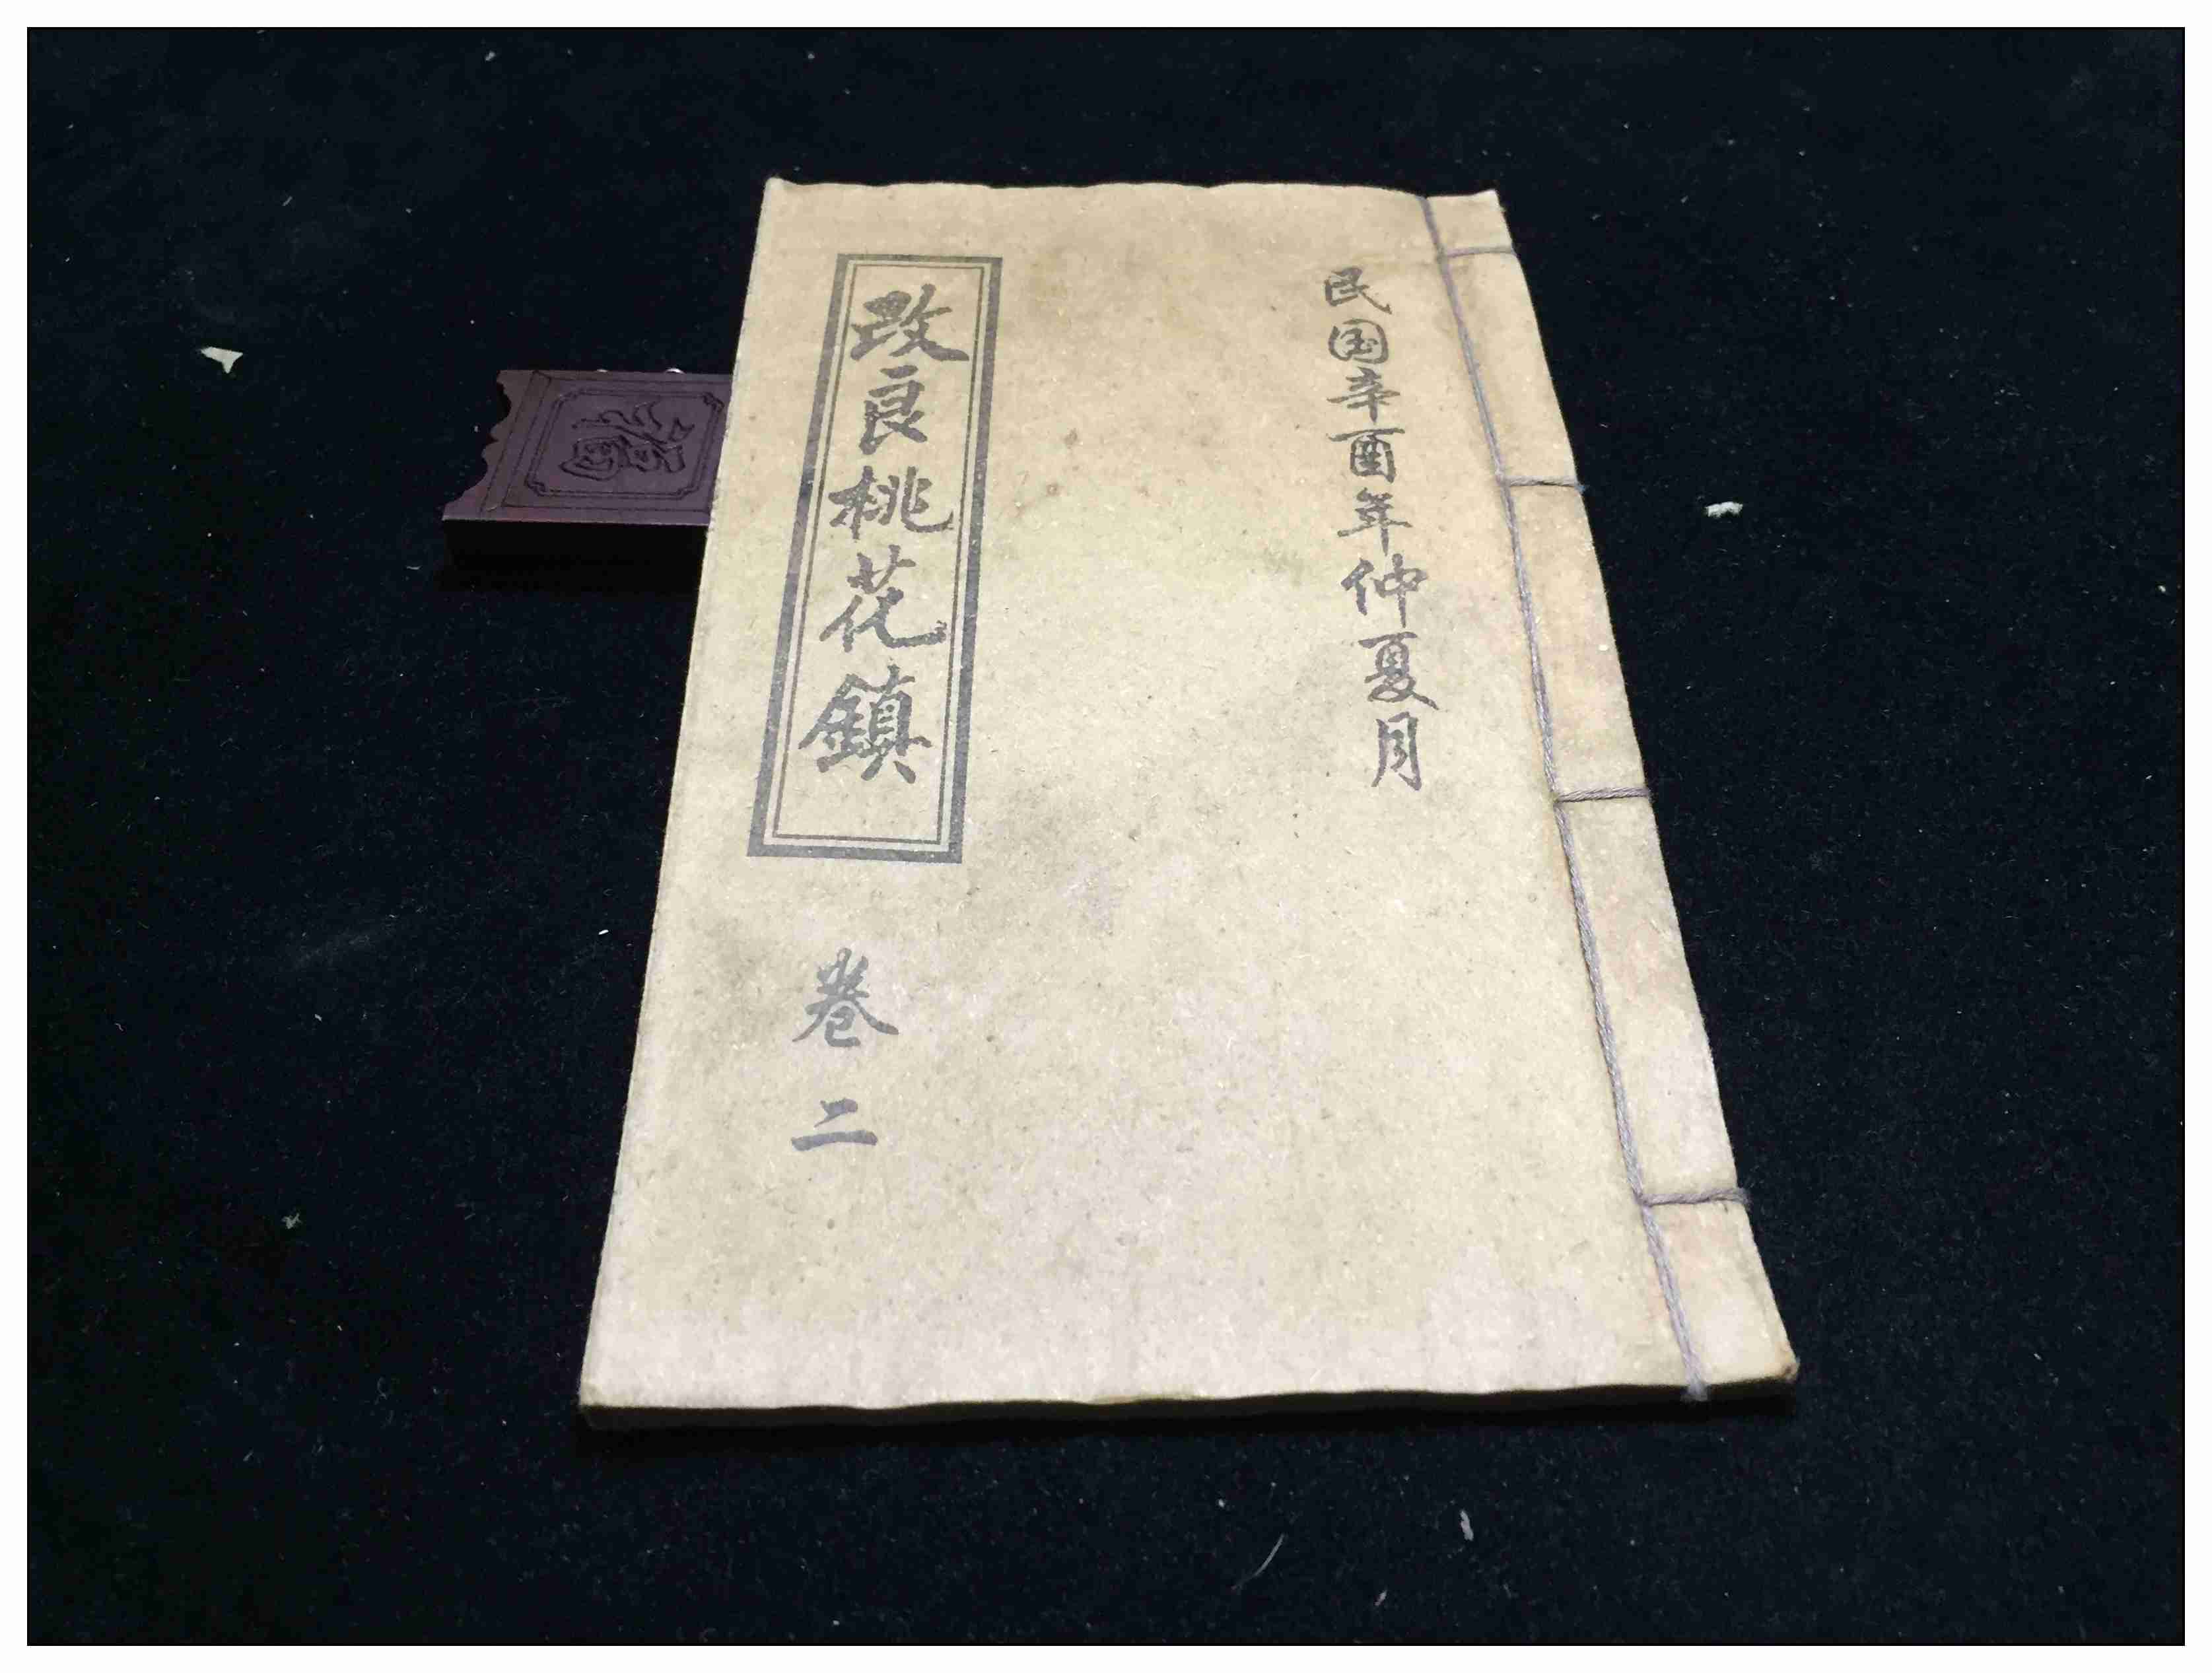 民国辛酉年仲夏月
改良桃花鎮
卷二